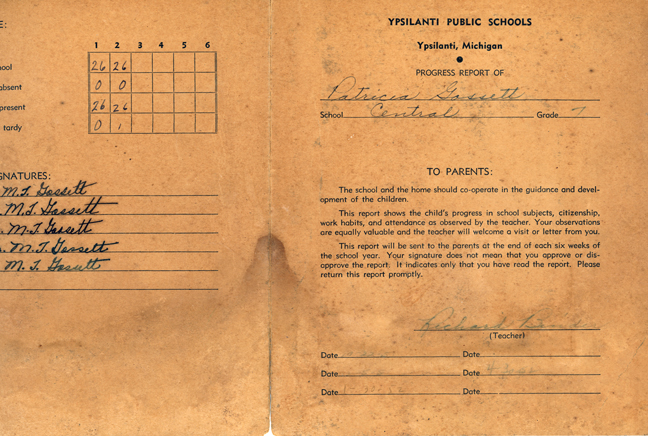 E:
1 2 3 4 5 6
ool 26 26
absent 0 0
present 26 26
tardy 0 1
GNATURES:
M.T. Gossett
M.T. Gossett
M.T Gossett
M.T. Gossett
M.T. Gossett
YPSILANTI PUBLIC SCHOOLS
Ypsilanti, Michigan
PROGRESS REPORT OF
Patricia Gossett
School Central Grade 7
TO PARENTS:
The school and the home should co-operate in the guidance and devel-
opment of the children.
This report shows the child's progress in school subjects, citizenship,
work habits, and attendance as observed by the teacher. Your observations
are equally valuable and the teacher will welcome a visit or letter from you.
This report will be sent to the parents at the end of each six weeks of
the school year. Your signature does not mean that you approve or dis-
approve the report. It indicates only that you have read the report. Please
return this report promptly.
Richard
(Teacher)
Date Date
Date Date
Date Date